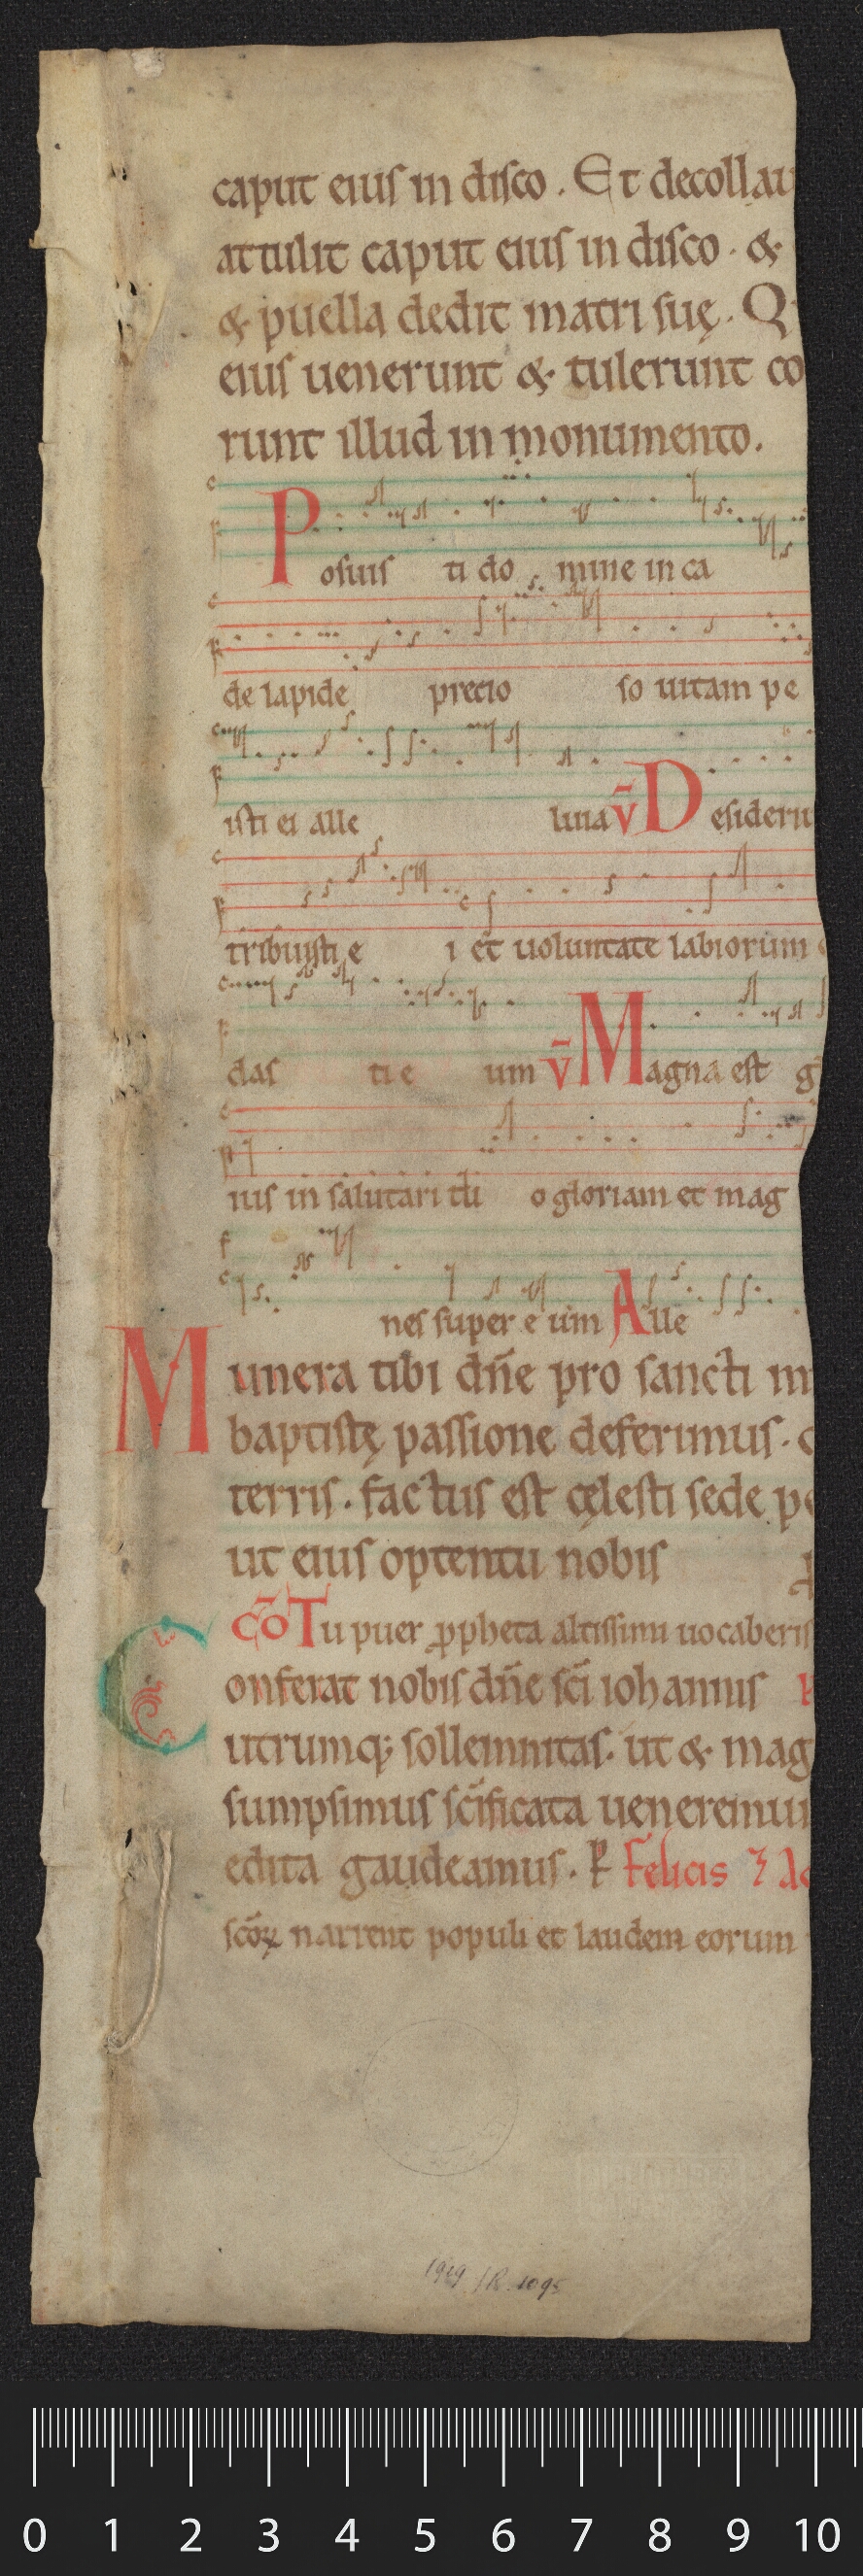 caput eiuſ in diſco . Et decollau
attulit caput eiuſ in diſco . &
& puella dedit matri ſuę . Q
eiuſ uenerunt & tulerunt co
runt illud in monumento.
Poſuiſ ti do mine in ca
de lapide precio ſo uitam pe
iſti ei alle luia v̄ Deſideriu
tribuiſti e i et uoluntate labiorum
das ti e um v̄ Magna eſt g
ius in ſalutari tu o gloriam et mag
nes ſuper e um Alle
Munera tibi dn̄e pro ſancti m
baptiſtę paſſione deferimuſ . q
terriſ . factuſ eſt cęleſti ſede pe
ut eiuſ optentu nobiſ
CO̅ Tu puer ꝓpheta altiſſimi uocaberiſ
Conferat nobiſ dn̄e ſc̄i iohanniſ
utrumq; ſollemnitaſ . ut & mag
ſumpſimuſ ſc̄ificata ueneremur
edita gaudeamuſ . Felicis ⁊ Ad
ſcōꝝ narrent populi et laudem eorum
1919 / R. 1095
0 1 2 3 4 5 6 7 8 9 10